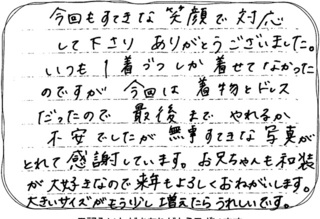 今回もすてきな笑顔で対応
して下さり ありがとうございました。
いつも1着づつしか着せてなかった
のですが 今回は着物とドレス
だったので 最後まで やれるか
不安でしたが 無事すてきな写真が
とれて感謝しています。お兄ちゃんも和装
が大好きなので来年もよろしくおねがいします。
大きいサイズがもう少し増えたらうれしいです。